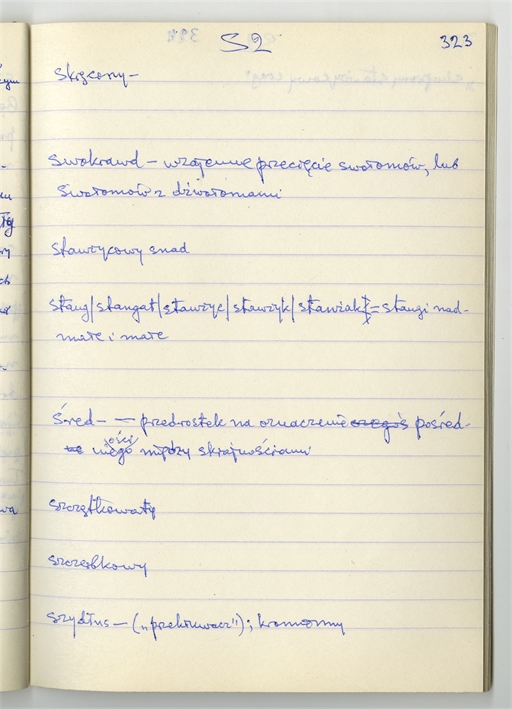 S2 323
Skręcony –
Swokrawd – wzajemne przecięcie swołomów, lub
swołomów z dźwołomami
stawrycowy snad
stang|stangat|stawryc|stawryk|stawiak = stangi nad-
małe i małe
Śred- – przedrostek na oznaczenie czegoś pośred-
ości
niego między skrajnościami
szczątkowaty
szczębkowy
szydłus – („przekłuwacz");